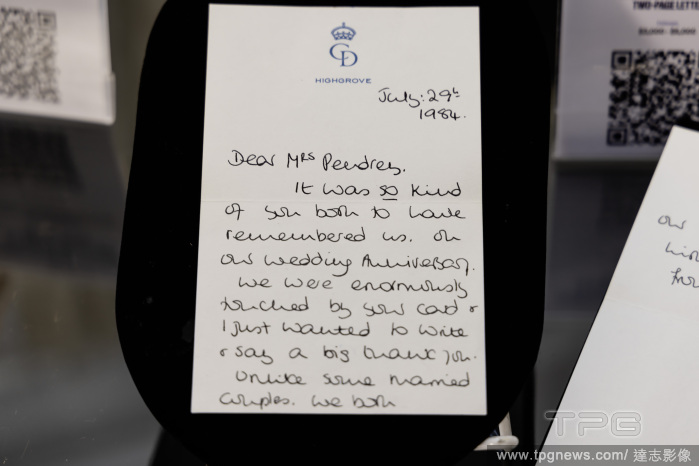 CD
HIGHGROVE
July: 29th
1984.
Dear Mrs Pendrey.
It was so kind
of you both to have
remembered us. on
our wedding Anniversary.
We were enormously
touched by your card &
I just wanted to write
& say a big thank you.
Unlike some married
couples. we both
TWO-PAGE LETTE
our
TPG
www.tpgnews.com/ 達志影像